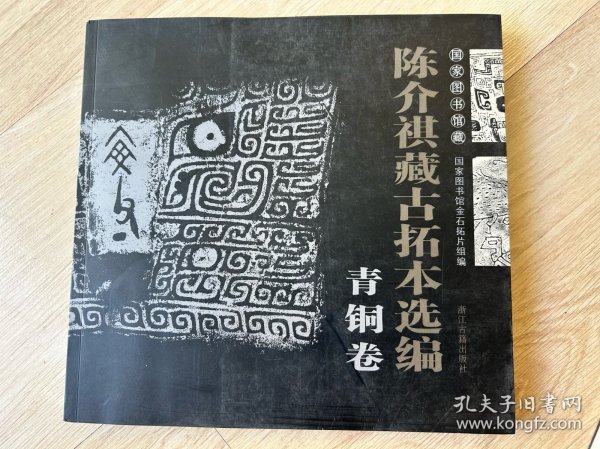 国家图书馆藏
陈介祺藏古拓本选编
青铜卷
国家图书馆金石拓片组编
浙江古籍出版社
孔夫子旧书网
www.kongfz.com